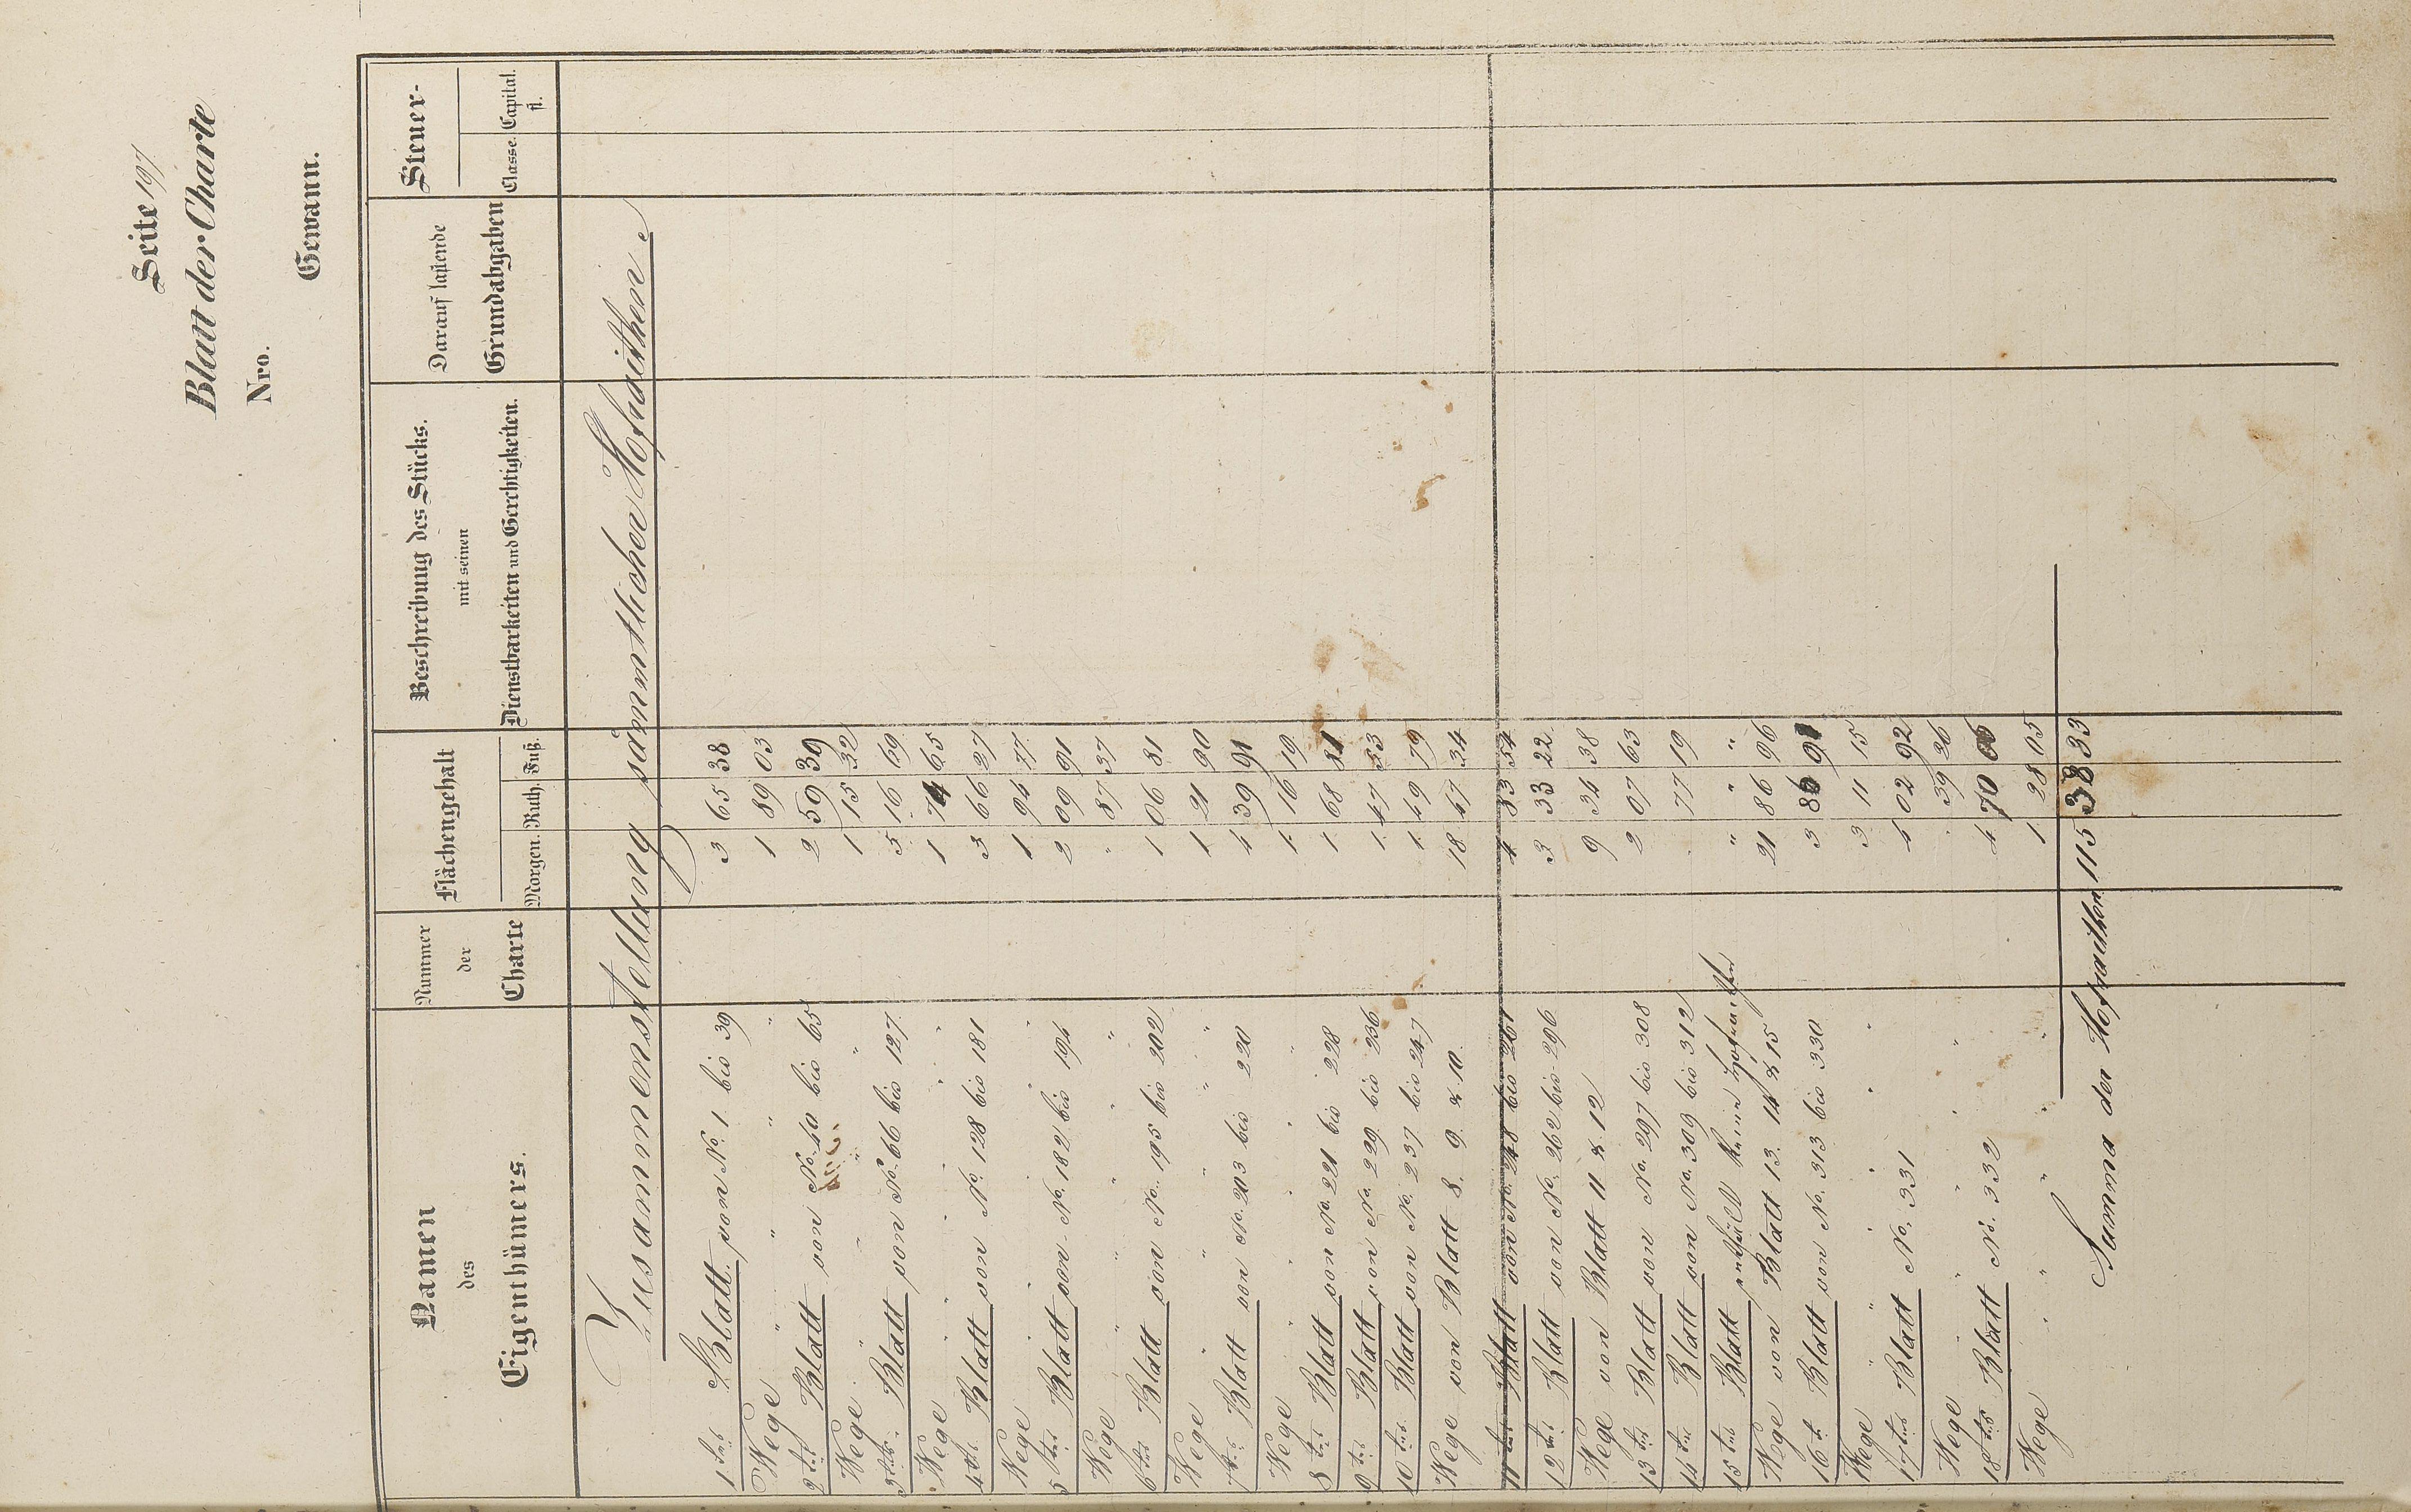 Seite 197
Blatt der Charte
Nro.
Gewann.
Namen des Eigenthümers.
Nummer der Charte
Flächengehalt
Morgen. Ruth. Fuß.
Beschreibung des Stücks.
mit seinen
Dienstbarkeiten und Gerechtigkeiten.
Darauf lastende
Grundabgaben
Steuer-
Classe. Capital. fl.
Zusammenstellung sämmtlicher Hofraithen
1tes Blatt von No. 1 bis 39 3 65 38
Wege " " " " 1 89 03
2tes Blatt von No. 40 bis 65 2 59 39
Wege " " " 1 15 32
3tes Blatt von No. 66 bis 127 5 16 69
Wege " " " " 1 74 65
4tes Blatt von No. 128 bis 181 3 66 27
Wege " " " 1 94 77
5tes Blatt von No. 182 bis 194 2 09 91
Wege " " " " " 87 37
6tes Blatt von No. 195 bis 202 1 06 81
Wege " " " " " 1 21 90
7tes Blatt von No. 203 bis 220 4 39 91
Wege " " " " 1 16 19
8tes Blatt von No. 221 bis 228 1 68 21
9tes Blatt von No. 229 bis 236 1 47 33
10tes Blatt von No. 237 bis 247 1 49 79
Wege von Blatt 8. 9. & 10. 18 47 34
11tes Blatt von No. 248 bis 261 4 83 54
12tes Blatt von No. 262 bis 296 3 33 22
Wege von Blatt 11 & 12 9 34 38
13tes Blatt von No. 297 bis 308 2 07 63
14tes Blatt von No. 309 bis 312 . 77 19
15tes Blatt enthält keine Hofraithe " " "
Wege von Blatt 13. 14 & 15 21 86 96
16t. Blatt von No. 313 bis 330 3 86 91
Wege " " " " 3 11 15
17tes Blatt No. 331 4 02 92
Wege " " " " . 39 26
18tes Blatt No. 332 4 70 06
Wege " " " " 1 28 05
Summa der Hofraithen 115 38 33